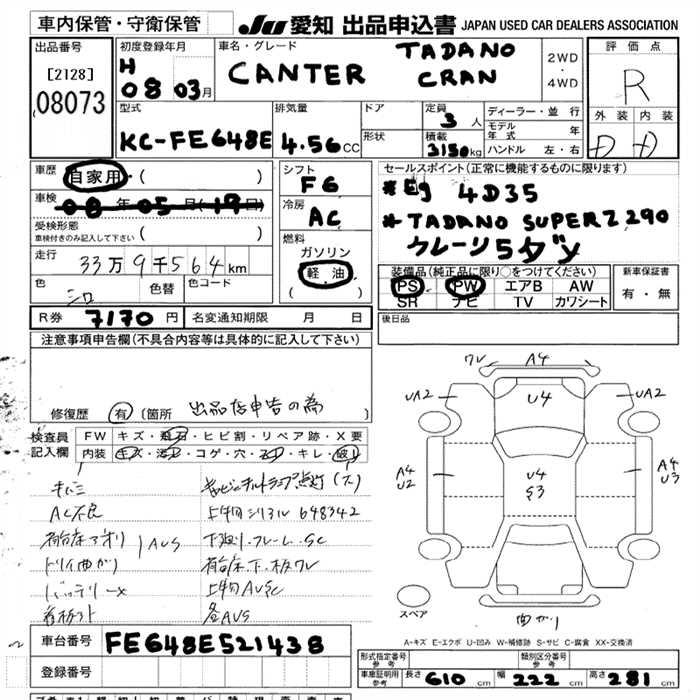 車内保管・守衛保管
JU 愛知 出品申込書 JAPAN USED CAR DEALERS ASSOCIATION
出品番号
[2128]
08073
初度登録年月
H 08 03月
車名・グレード
TADANO
CANTER CRAN
2WD
・
4WD
評価点
R
外装 内装
D D
型式
KC-FE648E
排気量
4.56CC
ドア
形状
定員
3人
積載
3150kg
ディーラー・並行
モデル年式 年
ハンドル 左・右
車歴 自家用 ( )
車検 08年05月(19日)
受検形態
車検付きのみ記入して下さい ( )
走行
33万9千564km
色 シロ
色替
色コード
シフト
F6
冷房
AC
燃料
ガソリン
軽油
( )
セールスポイント(正常に機能するものに限ります)
*Eg 4D35
*TADANO SUPER Z 290
クレーン5ダン
装備品(純正品に限り○をつけてください)
PS PW エアB AW
SR ナビ TV カワシート
新車保証書
有・無
R券 7170円
名変通知期限 月 日
後日品
注意事項申告欄(不具合内容等は具体的に記入して下さい)
修復歴 有 [箇所 出品店申告の為]
検査員記入欄
FW キズ・飛石・ヒビ割・リペア跡・X要
内装 キズ・汚レ・コゲ・穴・キレ・破レ
AC不良
上物シリアル 648342
荷台床アオリ AUS
下廻り・フレーム・SC
ドリイ曲がり
荷台床下・板ワレ
バッテリーX
上物AUSC
看板外ト
各AUS
ワレ A4
UA2 U4 UA2
A4 U2
U4 S3
A4 U3
スペア
曲がり
A-キズ E-エクボ U-凹み W-補修跡 S-サビ C-腐食 XX-交換済
車台番号 FE648E521438
登録番号
形式指定番号 参考
類別区分番号 参考
車庫証明用参考 長さ 610cm 幅 222cm 高さ 281cm